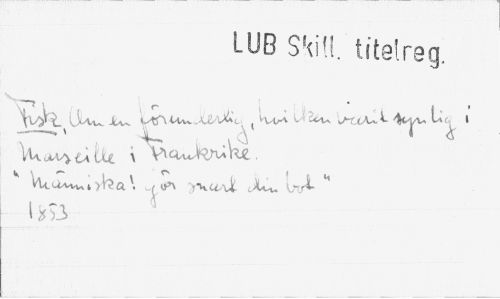 LUB Skill. titelreg.
Fisk, Om en förunderlig, hvilken varit synlig i
Marseille i Frankrike.
"Människa! gör snart din bot"
1853